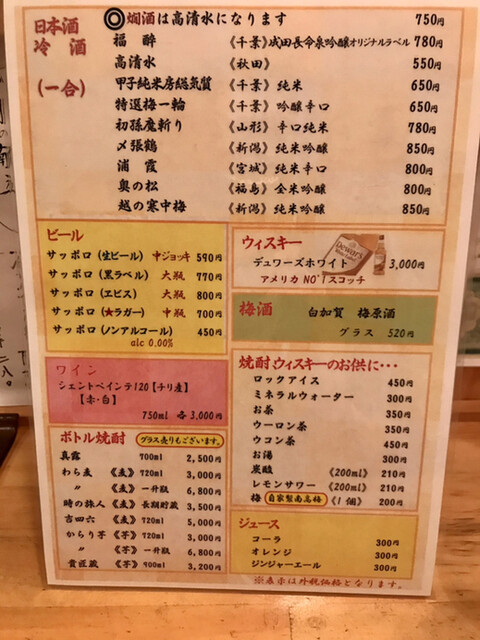 日本酒
冷酒
(一合)
◎燗酒は高清水になります 750円
福酔 《千葉》成田長命泉吟醸オリジナルラベル 780円
高清水 《秋田》 550円
甲子純米房総気質 《千葉》純米 650円
特選梅一輪 《千葉》吟醸辛口 650円
初孫魔斬り 《山形》辛口純米 780円
〆張鶴 《新潟》純米吟醸 850円
浦霞 《宮城》純米辛口 800円
奥の松 《福島》全米吟醸 800円
越の寒中梅 《新潟》純米吟醸 850円
ビール
サッポロ(生ビール) 中ジョッキ 590円
サッポロ(黒ラベル) 大瓶 770円
サッポロ(ヱビス) 大瓶 800円
サッポロ(★ラガー) 中瓶 700円
サッポロ(ノンアルコール) 450円
alc 0.00%
ウィスキー
デュワーズホワイト 3,000円
Dewar's
アメリカ NO'1スコッチ
梅酒 白加賀 梅原酒
グラス 520円
ワイン
シェントペインテ120【チリ産】
【赤・白】
750ml 各3,000円
ボトル焼酎 グラス売りもございます。
真露 700ml 2,500円
わら麦 《麦》720ml 3,000円
〃 《麦》一升瓶 6,800円
時の旅人 《麦》長期貯蔵 3,500円
吉四六 《麦》720ml 5,000円
からり芋 《芋》720ml 3,000円
〃 《芋》一升瓶 6,800円
貴匠蔵 《芋》900ml 3,200円
焼酎、ウィスキーのお供に・・・
ロックアイス 450円
ミネラルウォーター 300円
お茶 350円
ウーロン茶 350円
ウコン茶 450円
お湯 300円
炭酸 《200ml》 210円
レモンサワー 《200ml》 210円
梅 自家製南高梅 《1個》 200円
ジュース
コーラ 300円
オレンジ 300円
ジンジャーエール 300円
※表示は外税価格となります。